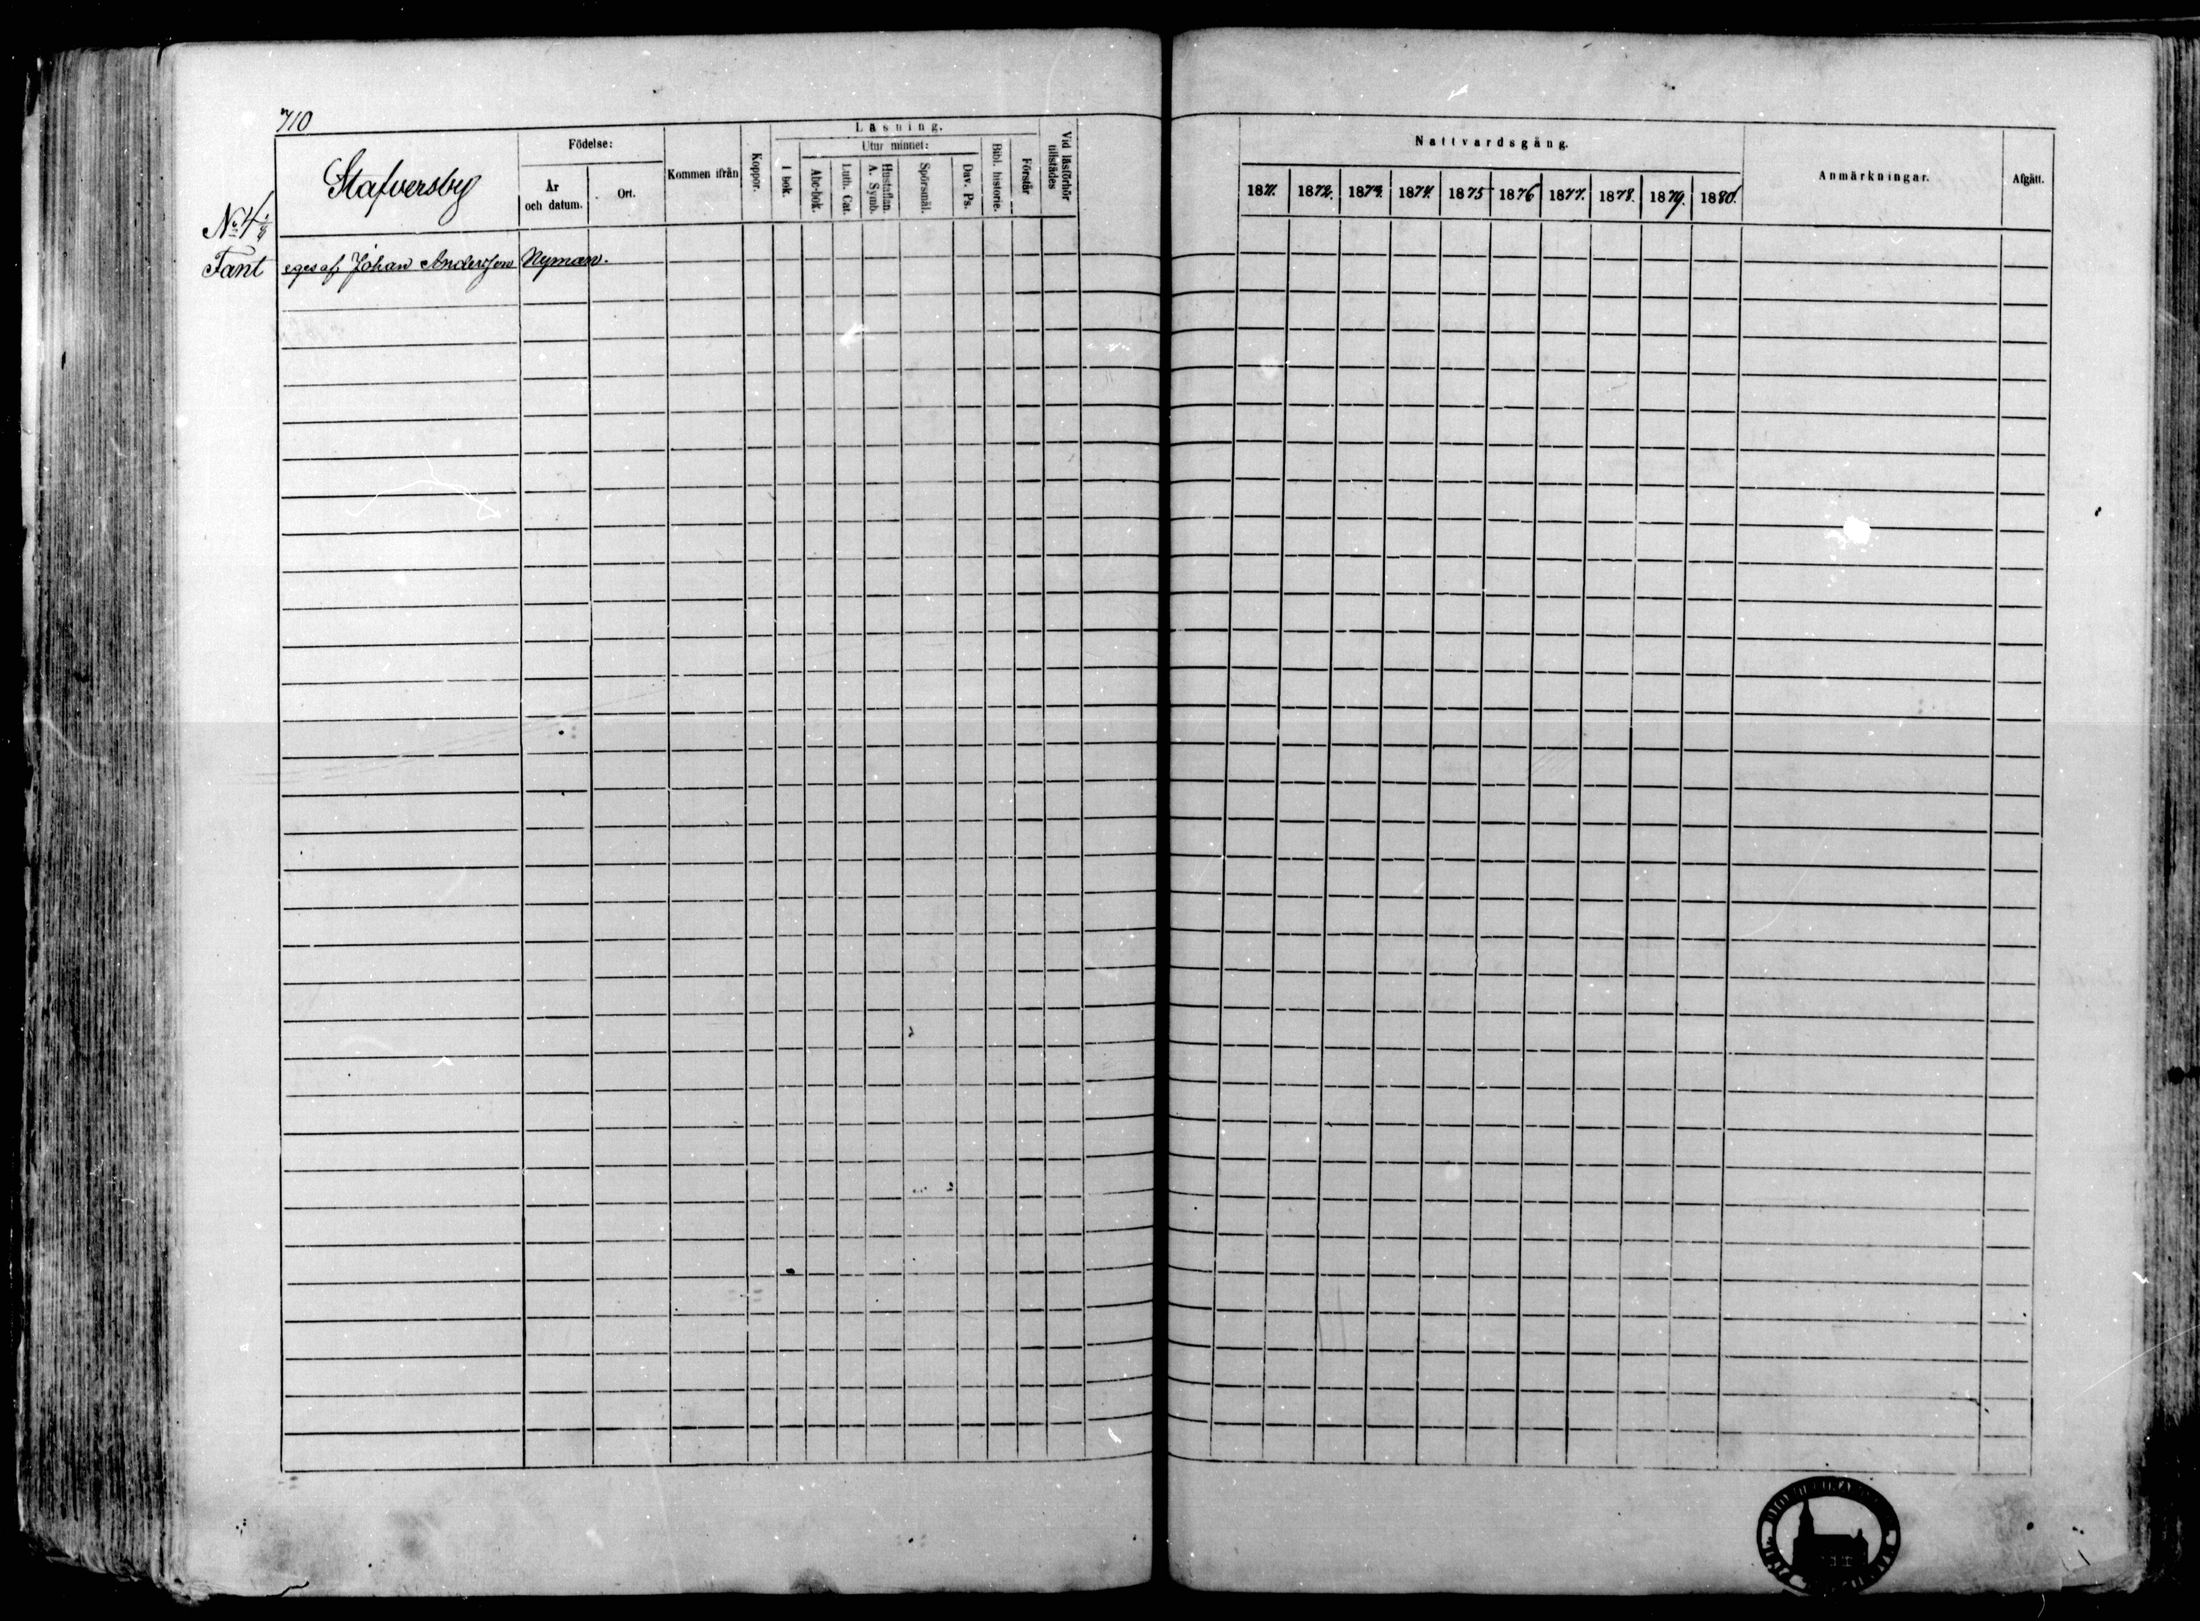 710
Stafversby
Födelse:
År
och datum.
Ort.
Kommen ifrån
Koppor.
Läsning.
I bok.
Utur minnet:
Abc-bok.
Luth. Cat.
Hustaflan.
A. Symb.
Spörsmål.
Dav. Ps.
Bibl. historie.
Förstår
Vid läsförhör
tillstädes
Nattvardsgång.
1871. 1872. 1873. 1874. 1875 1876 1877. 1878. 1879. 1880.
Anmärkningar.
Afgått.
No 4
Fant eges af Johan Andersson Nyman.